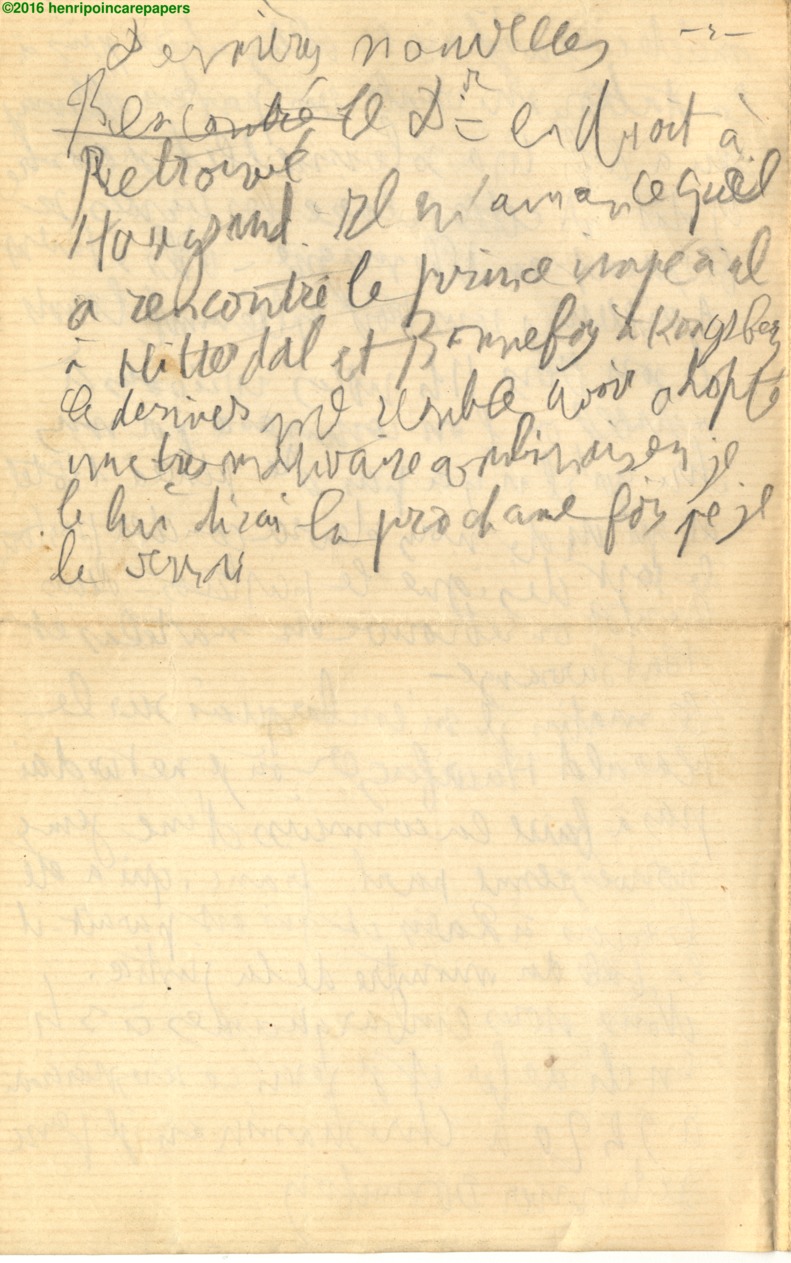 ©2016 henripoincarepapers
Dernières nouvelles
Rencontré le Dr en droit à
Retrouvé
Haugsund. Il m'annonce qu'il
a rencontré le prince impérial
à Hitterdal et Bonnefoy à Kongsberg
Ce dernier me semble avoir adopté
une très mauvaise combinaison je
le lui dirai la prochaine fois que je
le verrai